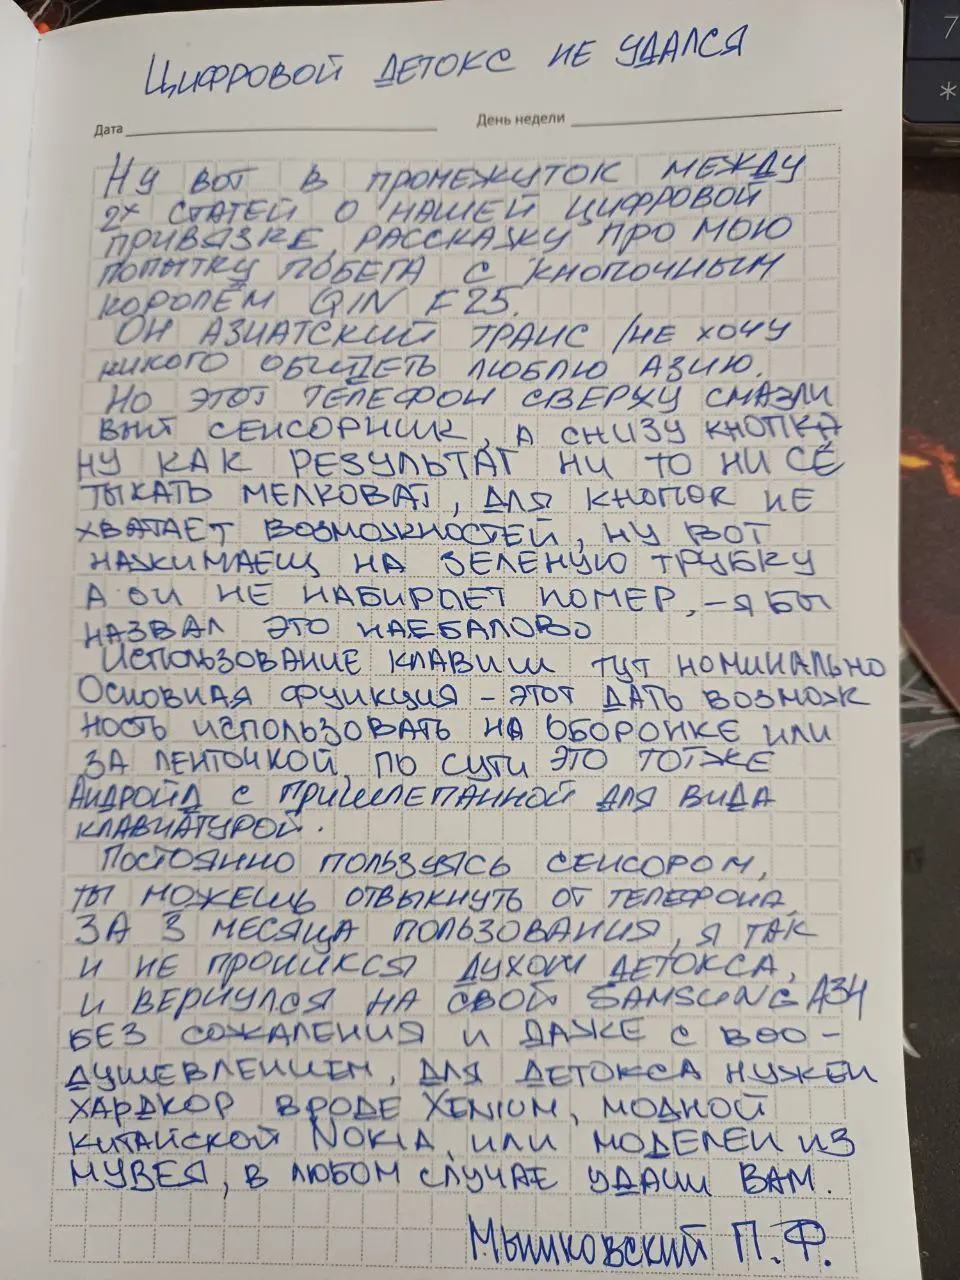 7
*
ЦИФРОВОЙ ДЕТОКС НЕ УДАЛСЯ
Дата День недели
НУ ВОТ В ПРОМЕЖУТОК МЕЖДУ
2х СТАТЕЙ О НАШЕЙ ЦИФРОВОЙ
ПРИВЯЗКЕ, РАССКАЖУ ПРО МОЮ
ПОПЫТКУ ПОБЕГА С КНОПОЧНЫМ
КОРОЛЁМ QIN F25.
ОН АЗИАТСКИЙ ТРАНС /НЕ ХОЧУ
НИКОГО ОБИДЕТЬ ЛЮБЛЮ АЗИЮ.
НО ЭТОТ ТЕЛЕФОН СВЕРХУ СМАЗЛИ
ВЫЙ СЕНСОРНИК, А СНИЗУ КНОПКА
НУ КАК РЕЗУЛЬТАТ НИ ТО НИ СЁ
ТЫКАТЬ МЕЛКОВАТ, ДЛЯ КНОПОК НЕ
ХВАТАЕТ ВОЗМОЖНОСТЕЙ, НУ ВОТ
НАЖИМАЕЩ НА ЗЕЛЕНУЮ ТРУБКУ
А ОН НЕ НАБИРАЕТ НОМЕР, – Я БЫ
НАЗВАЛ ЭТО НАЕБАЛОВО
ИСПОЛЬЗОВАНИЕ КЛАВИШ ТУТ НОМИНАЛЬНО
ОСНОВНАЯ ФУНКЦИЯ – ЭТОТ ДАТЬ ВОЗМОЖ
НОСТЬ ИСПОЛЬЗОВАТЬ НА ОБОРОНКЕ ИЛИ
ЗА ЛЕНТОЧКОЙ, ПО СУТИ ЭТО ТОТЖЕ
АНДРОЙД С ПРИШЛЕПАННОЙ ДЛЯ ВИДА
КЛАВИАТУРОЙ.
ПОСТОЯННО ПОЛЬЗУЯСЬ СЕНСОРОМ,
ТЫ МОЖЕШЬ ОТВЫКНУТЬ ОТ ТЕЛЕФОНА,
ЗА 3 МЕСЯЦА ПОЛЬЗОВАНИЯ, Я ТАК
И НЕ ПРОНИКСЯ ДУХОМ ДЕТОКСА,
И ВЕРНУЛСЯ НА СВОЙ SAMSUNG A34
БЕЗ СОЖАЛЕНИЯ И ДАЖЕ С ВОО –
ДУШЕВЛЕНИЕМ, ДЛЯ ДЕТОКСА НУЖЕН
ХАРДКОР ВРОДЕ XENIUM, МОДНОЙ
КИТАЙСКОЙ NOKIA, ИЛИ МОДЕЛЕЙ ИЗ
МУЗЕЯ, В ЛЮБОМ СЛУЧАЕ УДАЧИ ВАМ.
Мышковский П.Ф.